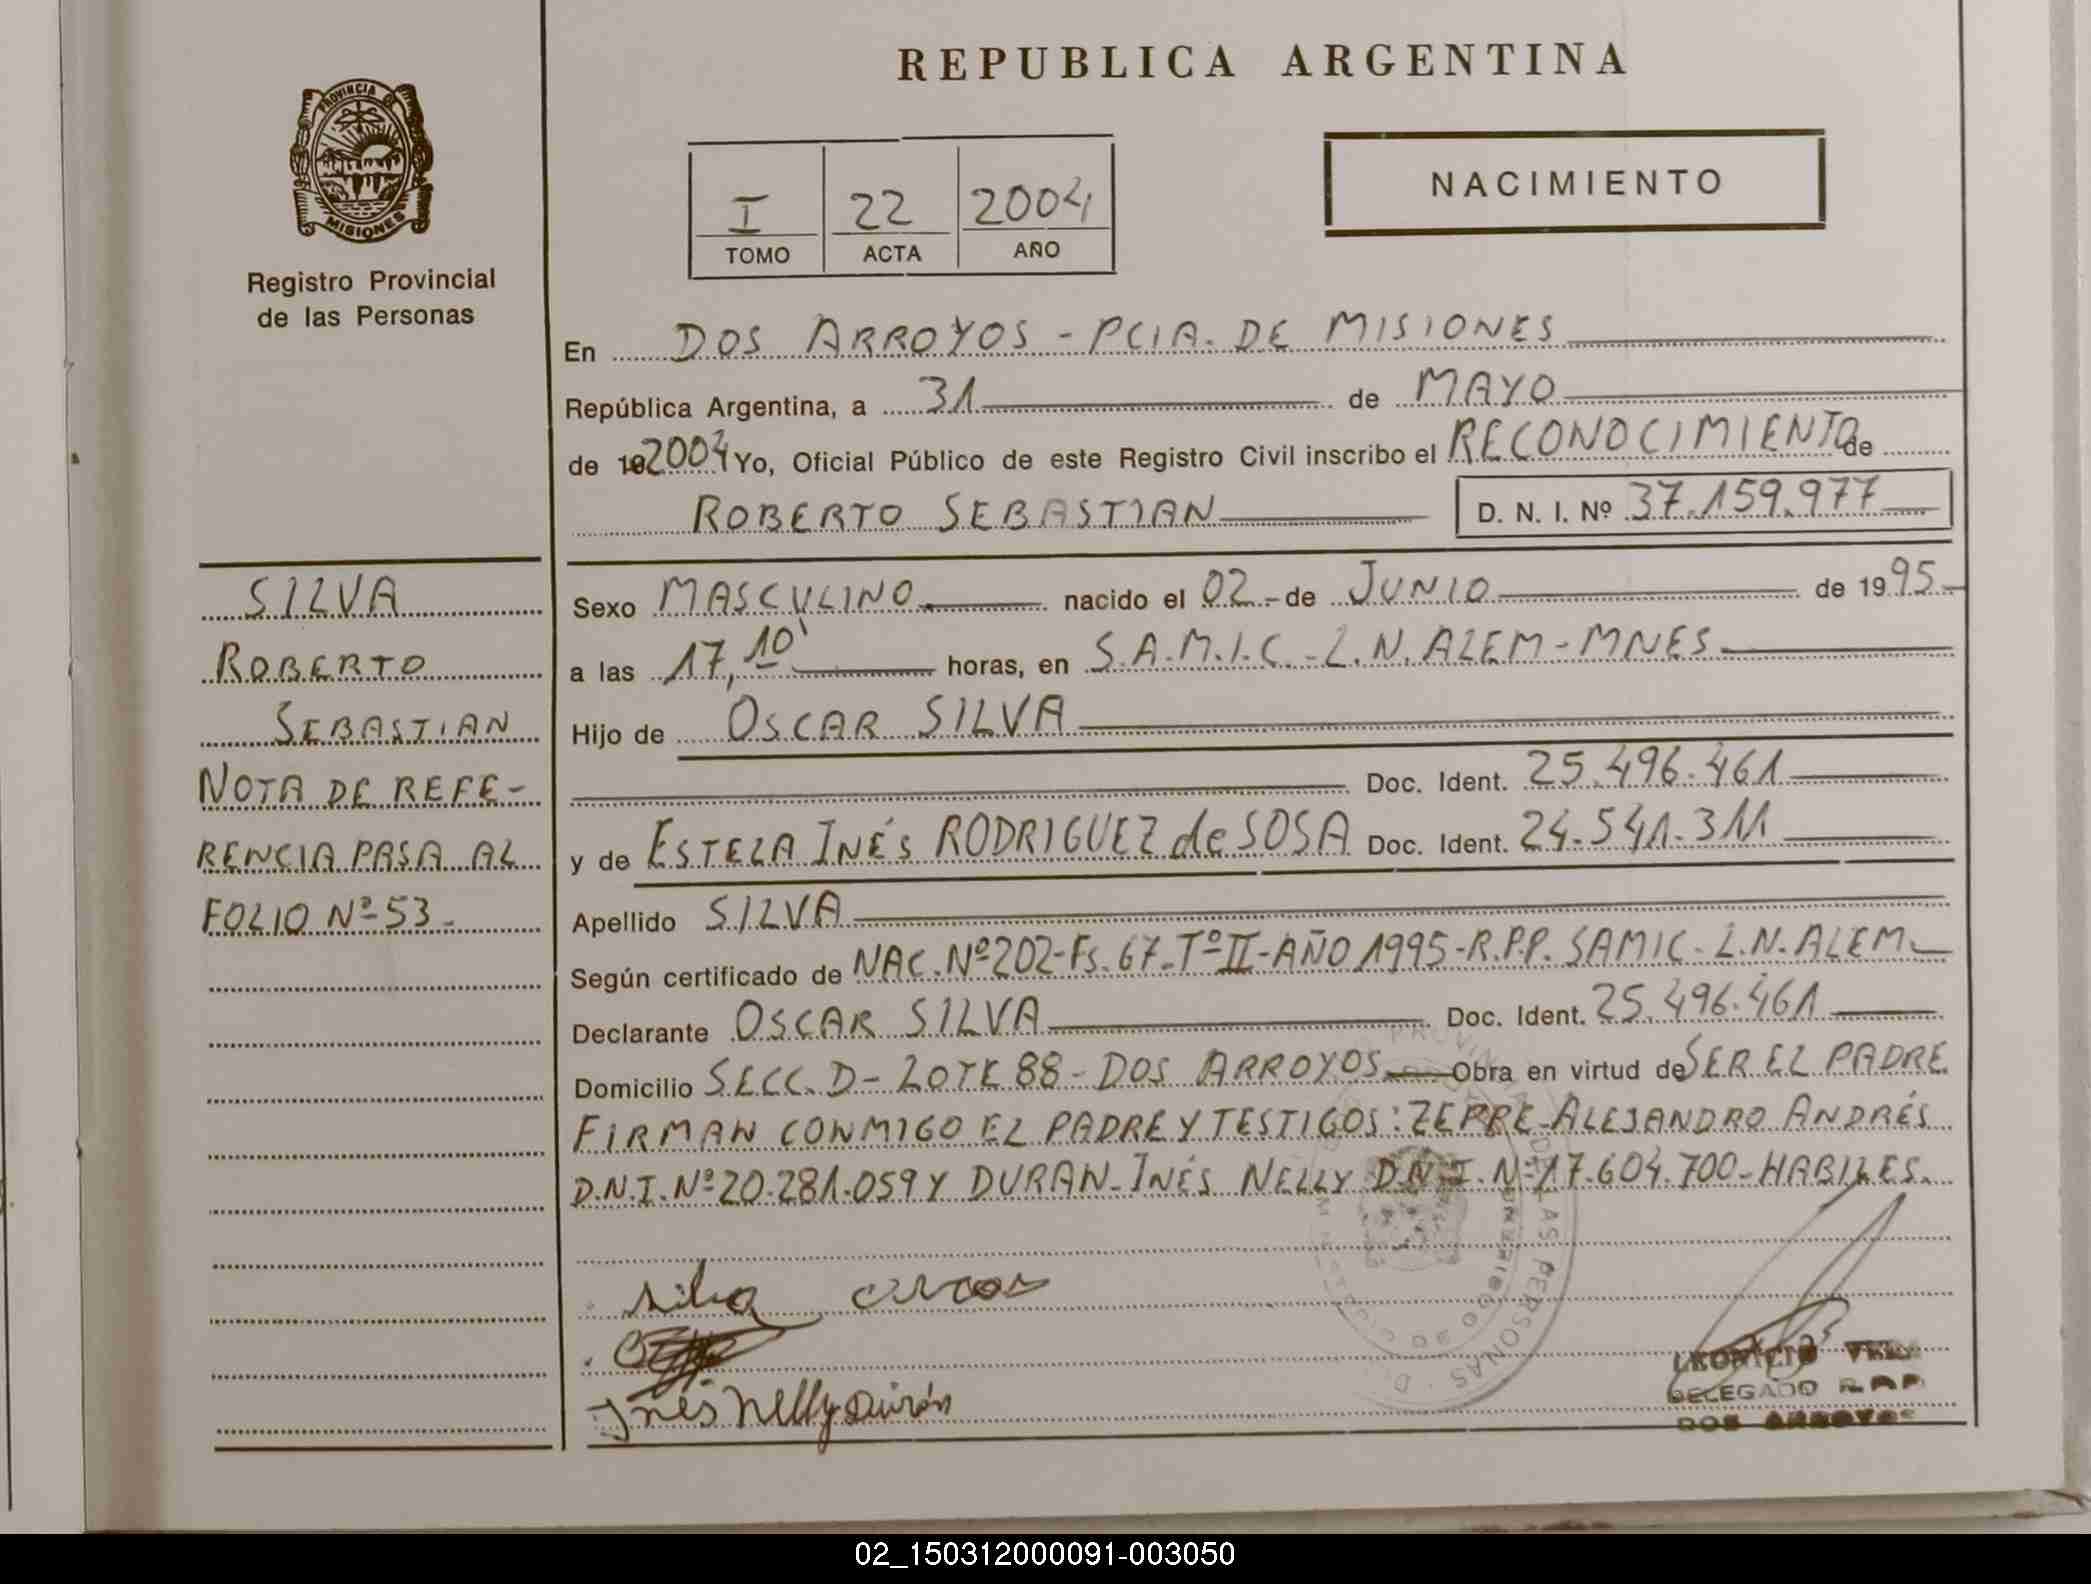 REPUBLICA ARGENTINA
PROVINCIA DE
MISIONES
Registro Provincial
de las Personas
I 22 2004
TOMO ACTA AÑO
NACIMIENTO
En DOS ARROYOS - PCIA. DE MISIONES
República Argentina, a 31 de MAYO
de 19 2004 Yo, Oficial Público de este Registro Civil inscribo el RECONOCIMIENTO de
ROBERTO SEBASTIAN D. N. I. Nº 37.159.977
SILVA
ROBERTO
SEBASTIAN
NOTA DE REFE-
RENCIA PASA AL
FOLIO Nº 53.-
Sexo MASCULINO nacido el 02.- de JUNIO de 1995.-
a las 17,10' horas, en S.A.M.I.C.-L.N.ALEM-MNES
Hijo de OSCAR SILVA
Doc. Ident. 25.496.461
y de ESTELA INÉS RODRIGUEZ de SOSA Doc. Ident. 24.541.311
Apellido SILVA
Según certificado de NAC.Nº202-Fs.67-TºII-AÑO 1995-R.P.P. SAMIC-L.N.ALEM-
Declarante OSCAR SILVA Doc. Ident. 25.496.461
Domicilio SECC. D- LOTE 88 - DOS ARROYOS Obra en virtud de SER EL PADRE
FIRMAN CONMIGO EL PADRE Y TESTIGOS: ZEPPE-ALEJANDRO ANDRÉS
D.N.I.Nº20.281.059 Y DURAN-INÉS NELLY D.N.I.Nº17.604.700-HABILES.
silva oscar
Inés Nelly Durán
LEONICIO VERA
DELEGADO R.P.P.
DOS ARROYOS
02_150312000091-003050